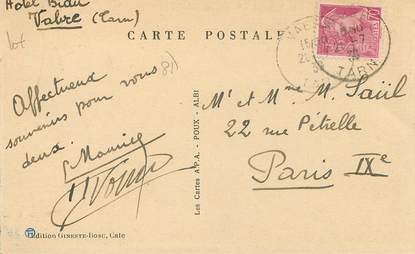 Hôtel Biau
Vabre (Tarn)
lot
CARTE POSTALE
TARN
Affectueux
souvenirs pour vous
deux.
Mr et Mme M. Saül
22 rue Pétrelle
Paris IXe
Les Cartes A.P.A. - POUX - ALBI
Edition GINESTE-BOSC, Cafe